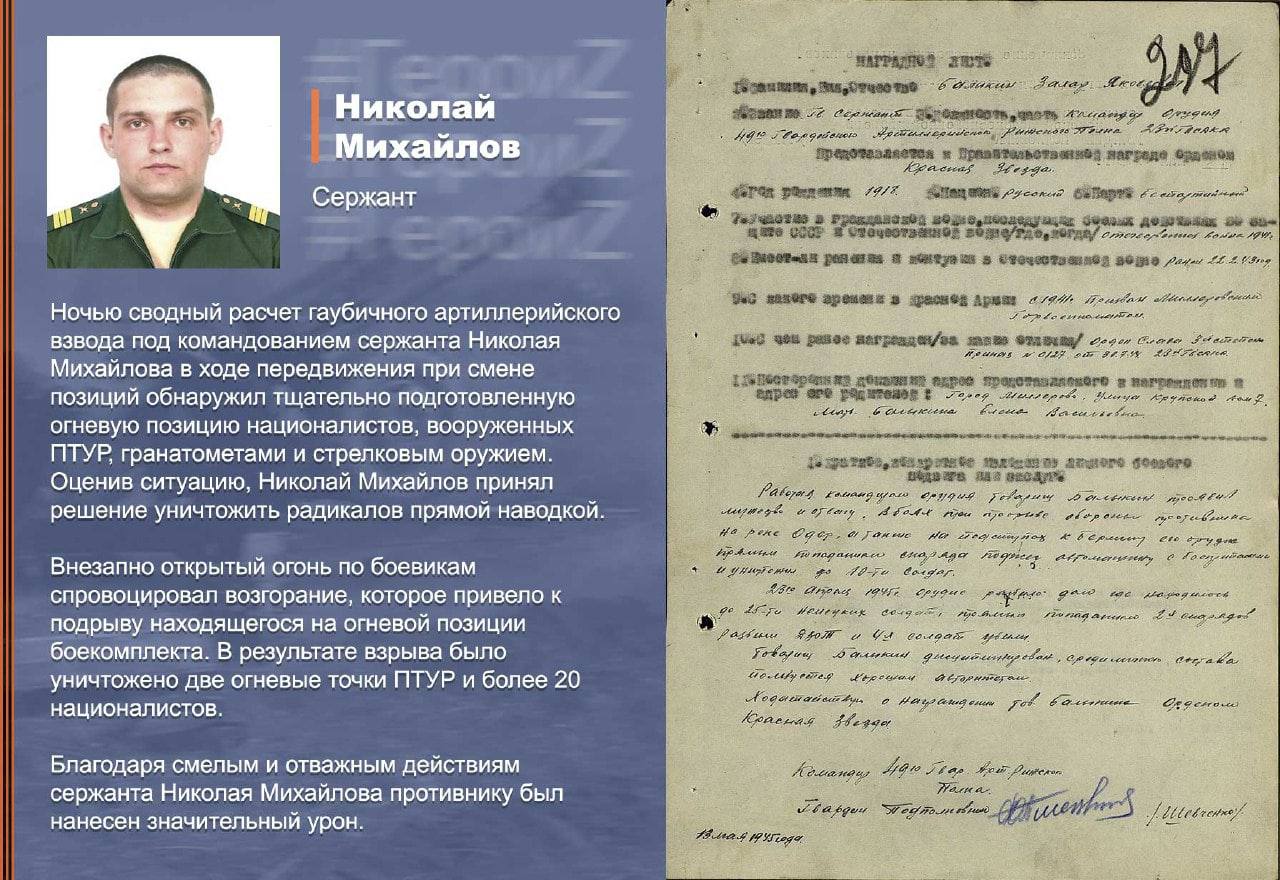 #ГероиZ
Николай
Михайлов
Сержант
Ночью сводный расчет гаубичного артиллерийского
взвода под командованием сержанта Николая
Михайлова в ходе передвижения при смене
позиций обнаружил тщательно подготовленную
огневую позицию националистов, вооруженных
ПТУР, гранатометами и стрелковым оружием.
Оценив ситуацию, Николай Михайлов принял
решение уничтожить радикалов прямой наводкой.
Внезапно открытый огонь по боевикам
спровоцировал возгорание, которое привело к
подрыву находящегося на огневой позиции
боекомплекта. В результате взрыва было
уничтожено две огневые точки ПТУР и более 20
националистов.
Благодаря смелым и отважным действиям
сержанта Николая Михайлова противнику был
нанесен значительный урон.
НАГРАДНОЙ ЛИСТ
1. Фамилия, Имя, Отчество Балыкин Захар
Гв Сержант Должность, часть Командир Орудия
Гвардейского Артиллерийского Рижского Полка
Представляется к Правительственной награде орденом
Красная Звезда.
4. Год рождения 1918 Русский беспартийный
7. Участие в гражданской войне, последующих боевых действиях по за-
щите СССР и Отечественной войне/где, когда/
ранения и контузии в отечественной войне ранен 22.2.43 год
9. С какого времени в Красной Армии с 1941г. Призван Миллеровским
Горвоенкоматом.
10. чем ранее награжден/за какие отличия/ Орден Слава 3й степени
11. Постоянный домашний адрес представляемого к награждению и
адрес его родителей: город Миллерово, улица Крупской
Мать Балыкина Елена Васильевна
Краткое, конкретное изложение личного боевого
подвига или заслуг.
Работая командиром орудия товарищ Балыкин проявил
мужество и отвагу. В боях при прорыве обороны противника
на реке Одер, а также на подступах к Берлину его орудие
прямым попаданием снаряда
и уничтожил до 10-ти солдат.
23го апреля 1945г. орудие дом где находилось
до 25-ти немецких солдат, прямым попаданием 2х снарядов
разбили ДЗОТ и 4х солдат убили.
Товарищ Балыкин дисциплинирован, среди состава
пользуется хорошим авторитетом.
Ходатайствую о награждении тов Балыкина Орденом
Красная Звезда.
Командир Гвар. Арт. Рижского
Полка.
Гвардии Подполковник /Шевченко/
13 мая 1945 года.